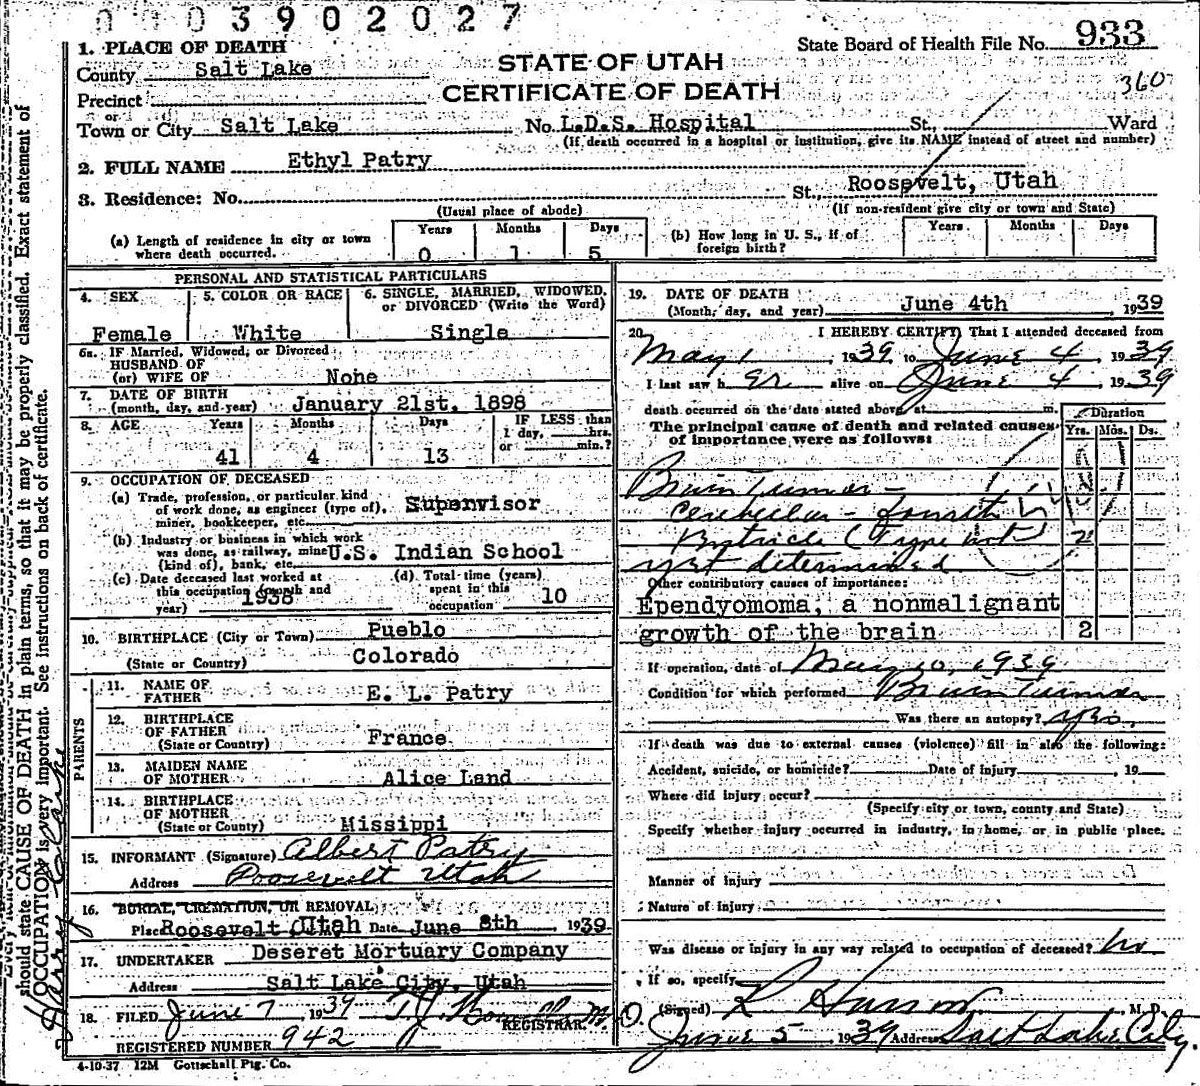 0003902027
State Board of Health File No. 933
360
STATE OF UTAH
CERTIFICATE OF DEATH
1. PLACE OF DEATH
County Salt Lake
Precinct
or
Town or City Salt Lake No. L.D.S. Hospital St., Ward
(If death occurred in a hospital or institution, give its NAME instead of street and number)
2. FULL NAME Ethyl Patry
3. Residence: No. St., Roosevelt, Utah
(Usual place of abode) (If non-resident give city or town and State)
(a) Length of residence in city or town where death occurred. Years 0 Months 1 Days 5
(b) How long in U. S., if of foreign birth? Years Months Days
PERSONAL AND STATISTICAL PARTICULARS
4. SEX Female
5. COLOR OR RACE White
6. SINGLE, MARRIED, WIDOWED, or DIVORCED (Write the Word) Single
6a. IF Married, Widowed, or Divorced
HUSBAND OF
(or) WIFE OF None
7. DATE OF BIRTH
(month, day, and year) January 21st. 1898
8. AGE Years 41 Months 4 Days 13
IF LESS than
1 day, hrs.
or min.?
9. OCCUPATION OF DECEASED
(a) Trade, profession, or particular kind
of work done, as engineer (type of),
miner, bookkeeper, etc. Supervisor
(b) Industry or business in which work
was done, as railway, mine
(kind of), bank, etc. U.S. Indian School
(c) Date deceased last worked at
this occupation (month and
year) 1938
(d) Total time (years)
spent in this
occupation 10
10. BIRTHPLACE (City or Town) Pueblo
(State or Country) Colorado
PARENTS
11. NAME OF
FATHER E. L. Patry
12. BIRTHPLACE
OF FATHER
(State or Country) France
13. MAIDEN NAME
OF MOTHER Alice Land
14. BIRTHPLACE
OF MOTHER
(State or Country) Missippi
15. INFORMANT (Signature) Albert Patry
Address Roosevelt Utah
16. BURIAL, CREMATION, OR REMOVAL
Place Roosevelt Utah Date June 8th 1939
17. UNDERTAKER Deseret Mortuary Company
Address Salt Lake City, Utah
18. FILED June 7 1939
REGISTRAR.
REGISTERED NUMBER 942
4-10-37 12M Gottschall Ptg. Co.
19. DATE OF DEATH
(Month, day, and year) June 4th 1939
20. I HEREBY CERTIFY, That I attended deceased from
May 1 1939 to June 4, 1939
I last saw h er alive on June 4 1939
death occurred on the date stated above, at m.
The principal cause of death and related causes
of importance were as follows:
Duration
Yrs. Mos. Ds.
Brain Tumor -
Cerebellar - fourth
Ventricle (Type not 2
yet determined
Other contributory causes of importance:
Ependyomoma, a nonmalignant
growth of the brain 2
If operation, date of May 10, 1939
Condition for which performed Brain Tumor
Was there an autopsy? yes.
If death was due to external causes (violence) fill in also the following:
Accident, suicide, or homicide? Date of injury , 19
Where did injury occur?
(Specify city or town, county and State)
Specify whether injury occurred in industry, in home, or in public place.
Manner of injury
Nature of injury
Was disease or injury in any way related to occupation of deceased? No
If so, specify
(Signed) M. D.
June 5 1939 Address Salt Lake City.
should state CAUSE OF DEATH in plain terms, so that it may be properly classified. Exact statement of
OCCUPATION is very important. See instructions on back of certificate.
Harry Clark